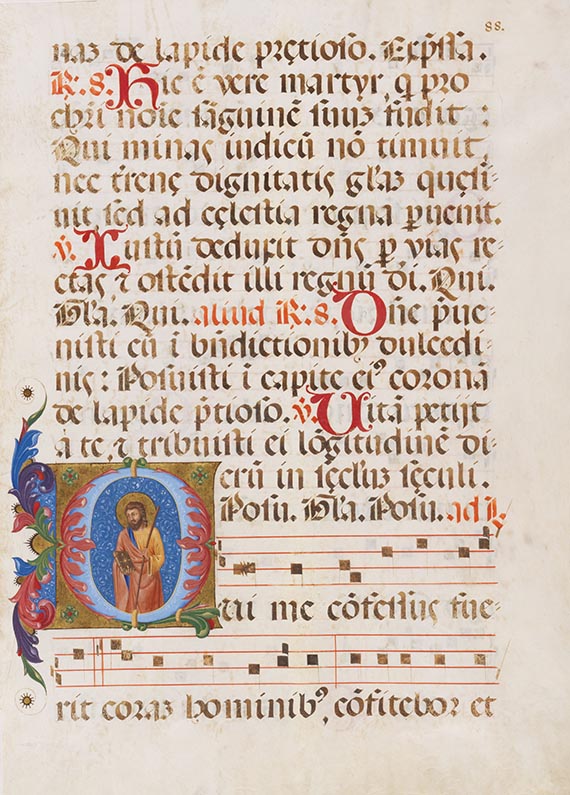 88.
naz de lapide pręciosо. Exp̄ssa.
R. 8. Hic ē vere martyr, q̄ pro
chr̄i noīe sāguinē suuz fudit :
Qui minas iudicū nō timuit,
nec t̄renę dignitatis gl̄az quęsi-
uit sed ad cęlestia regna p̄uenit.
v̄. Iustū deduxit dn̄s p̄ vias re-
ctas, ⁊ ostēdit illi regnū d̄i. Qui.
Gl̄a. Qui. aliud R. 8. Dn̄e p̄ue-
nisti eū ī bn̄dictionibꝰ dulcedi-
nis : Posuisti ī capite eiꝰ corona
de lapide p̄tioso. v̄. Uitā petijt
a te, ⁊ tribuisti ei lōgitudinē di-
erū in sęcluz sęculi.
Posu. Gl̄a. Posu. ad
Qui me cōfessus fue-
rit coraz hominibꝰ, cōfitebor et